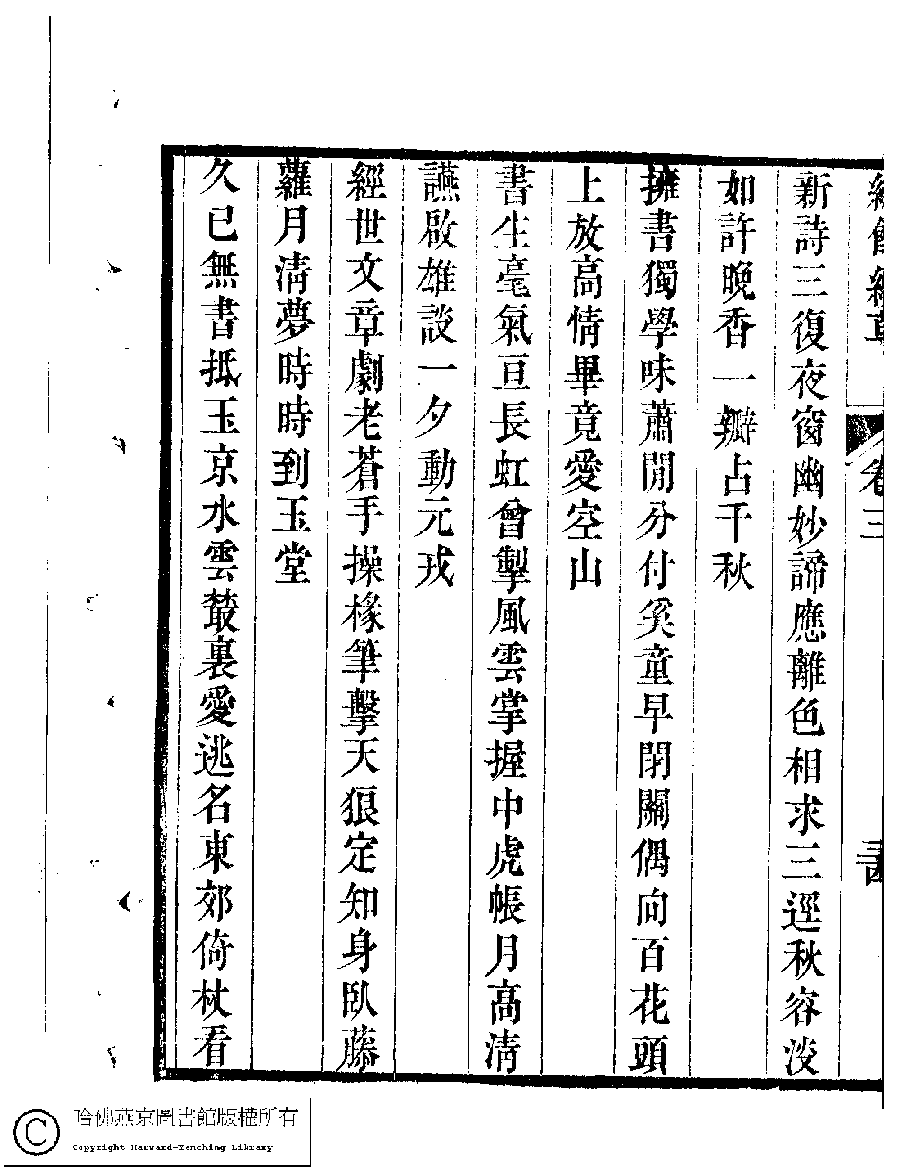 卷三
新詩三復夜窗幽妙諦應離色相求三逕秋容淡
如許晚香一瓣占千秋
擁書獨學味蕭閒分付奚童早閉關偶向百花頭
上放高情畢竟愛空山
書生毫氣亘長虹曾掣風雲掌握中虎帳月高淸
讌啟雄談一夕動元戎
經世文章劇老蒼手操椽筆擊天狼定知身臥藤
蘿月淸夢時時到玉堂
久已無書抵玉京水雲叢裏愛逃名東郊倚杖看
哈佛燕京圖書館版權所有
Copyright Harvard-Yenching Library